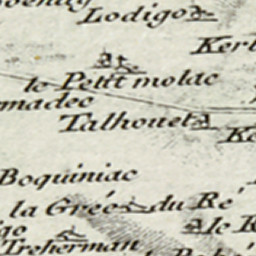 Lodigo
le Petit molac
madec
Talhouet
Boquiniac
la Grée du Ré
Treherman